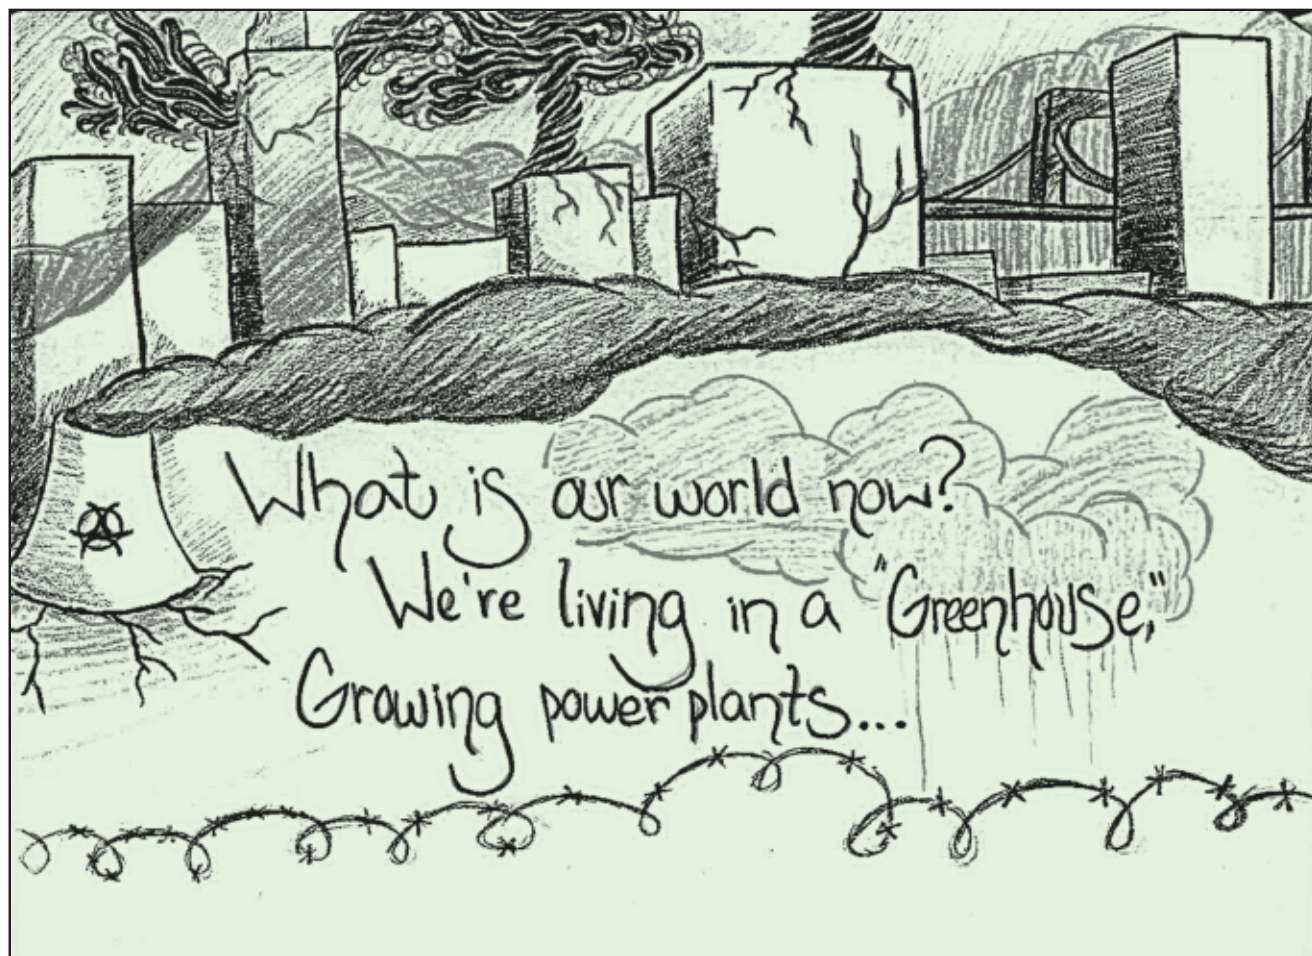 What is our world now?
We're living in a "Greenhouse,"
Growing power plants...